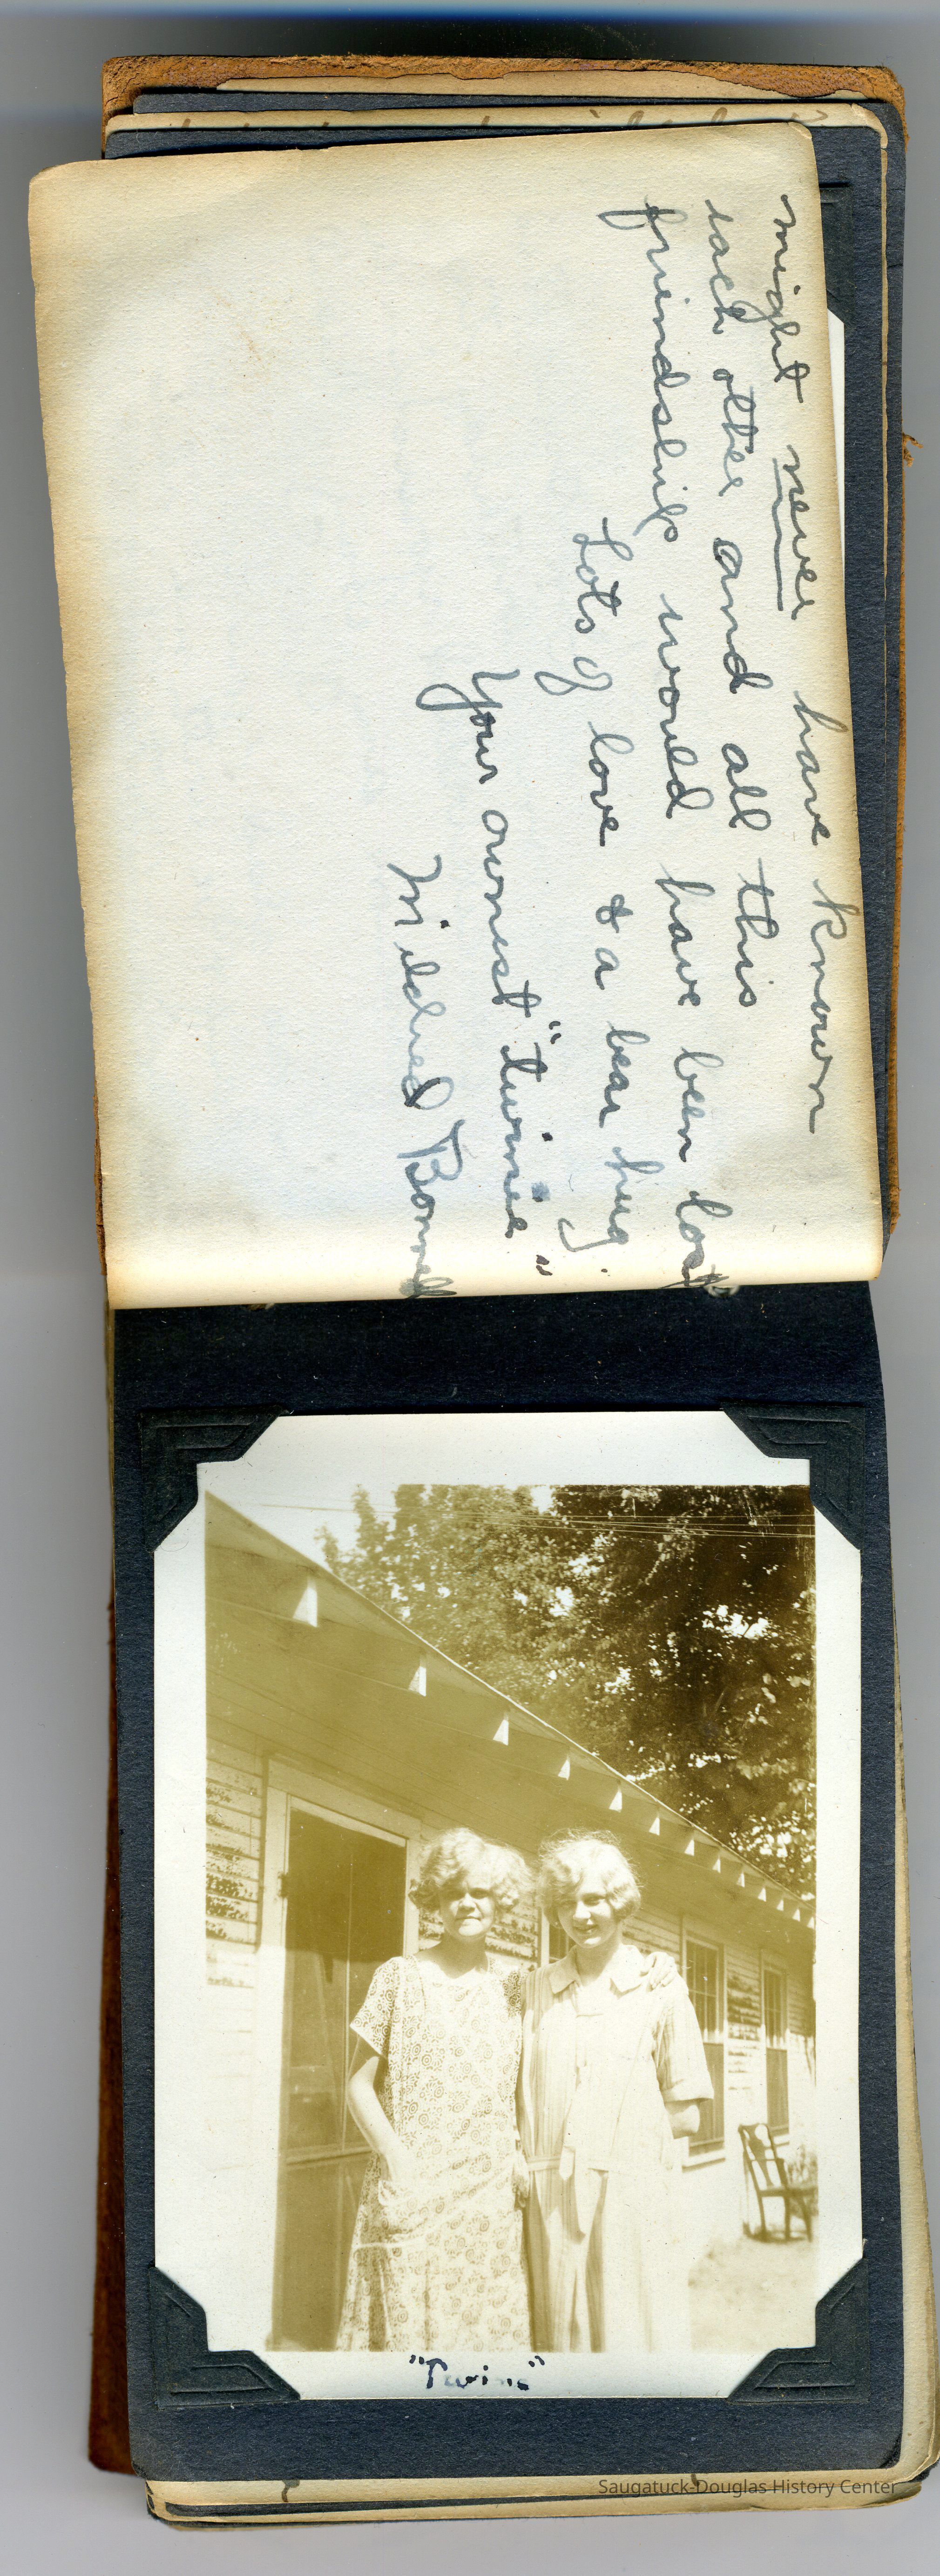 might never have known
each other and all this
friendship would have been lost
Lots of love & a bear hug,
Your ownest "twinie"
Mildred Bonnell
"Twins"
Saugatuck-Douglas History Center